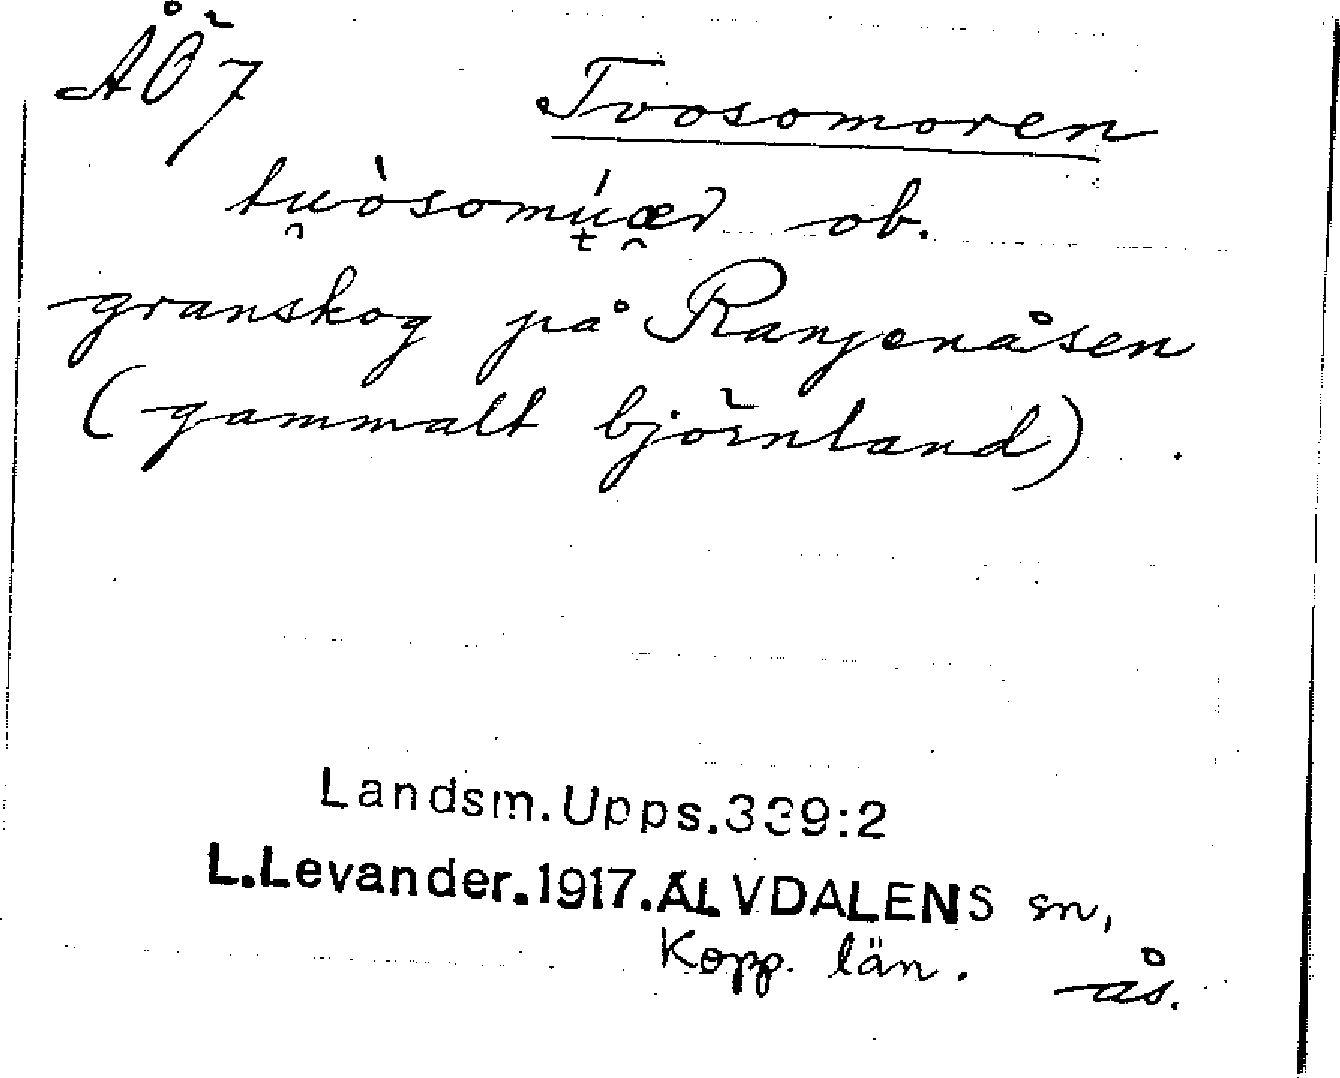 ÅÖ7
Tvosomoren
tu̯òsomúæ̯r ob.
granskog på Ranjenåsen
(gammalt björnland)
Landsm.Upps.339:2
L.Levander.1917.ÄLVDALENS sn,
Kopp. län.
ås.